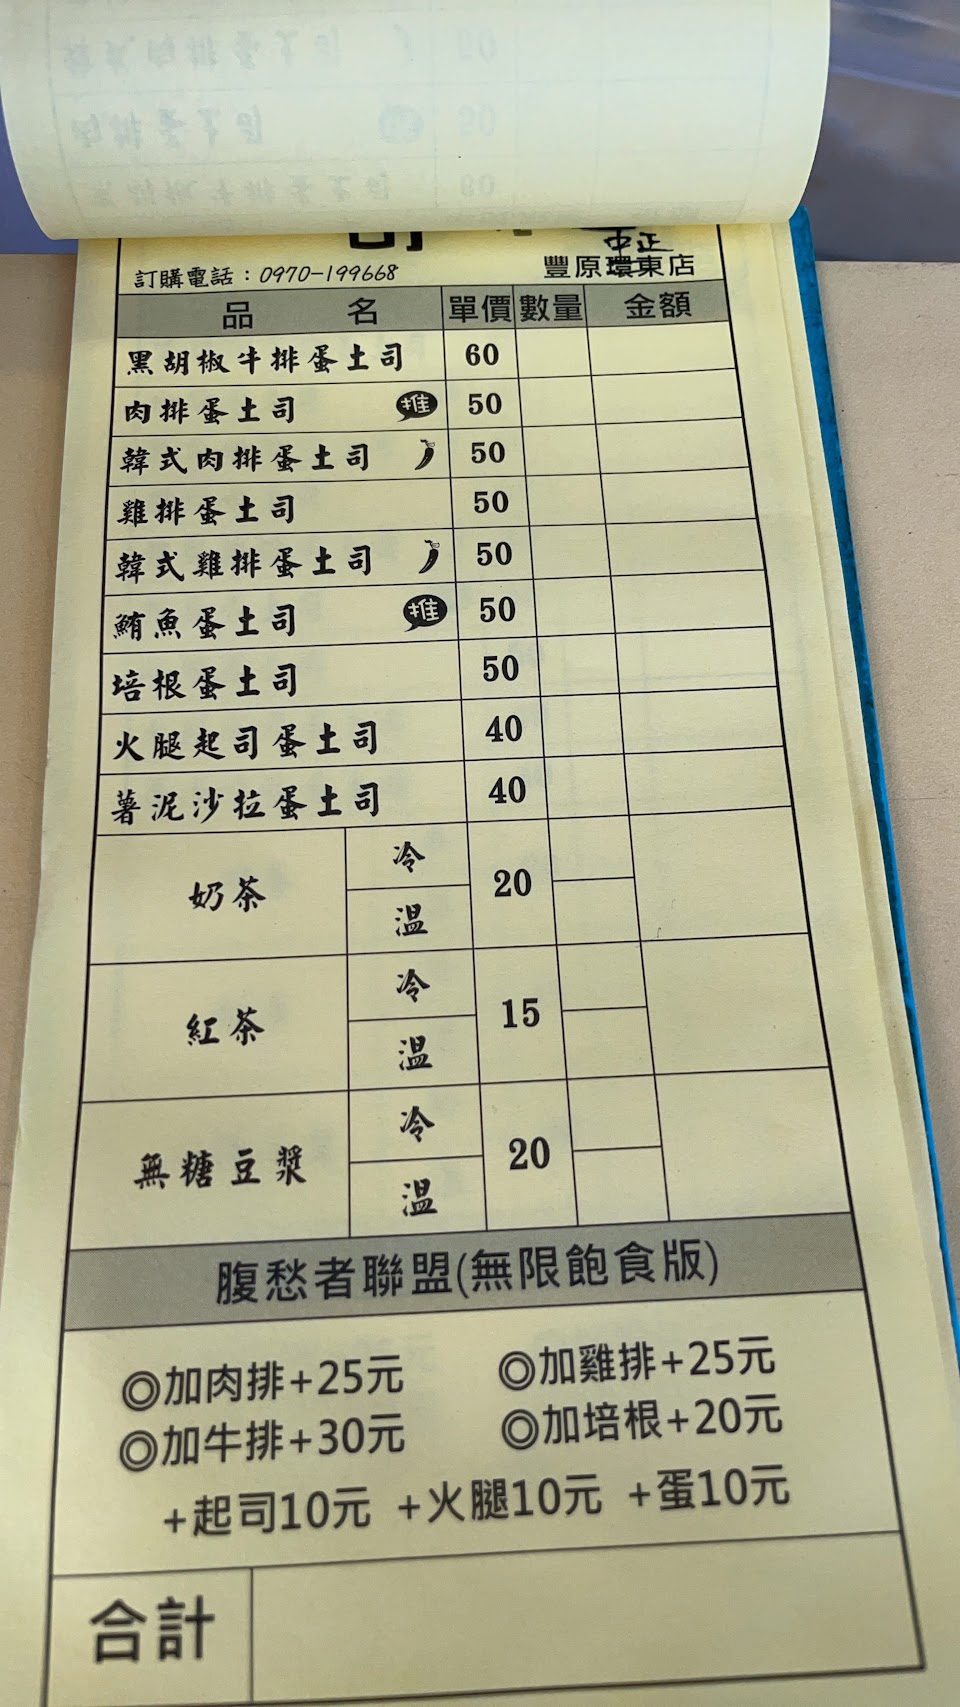 中正
訂購電話：0970-199668 豐原環東店
品 名 單價 數量 金額
黑胡椒牛排蛋土司 60
肉排蛋土司 推 50
韓式肉排蛋土司 50
雞排蛋土司 50
韓式雞排蛋土司 50
鮪魚蛋土司 推 50
培根蛋土司 50
火腿起司蛋土司 40
薯泥沙拉蛋土司 40
奶茶 冷 温 20
紅茶 冷 温 15
無糖豆漿 冷 温 20
腹愁者聯盟(無限飽食版)
◎加肉排+25元 ◎加雞排+25元
◎加牛排+30元 ◎加培根+20元
+起司10元 +火腿10元 +蛋10元
合計